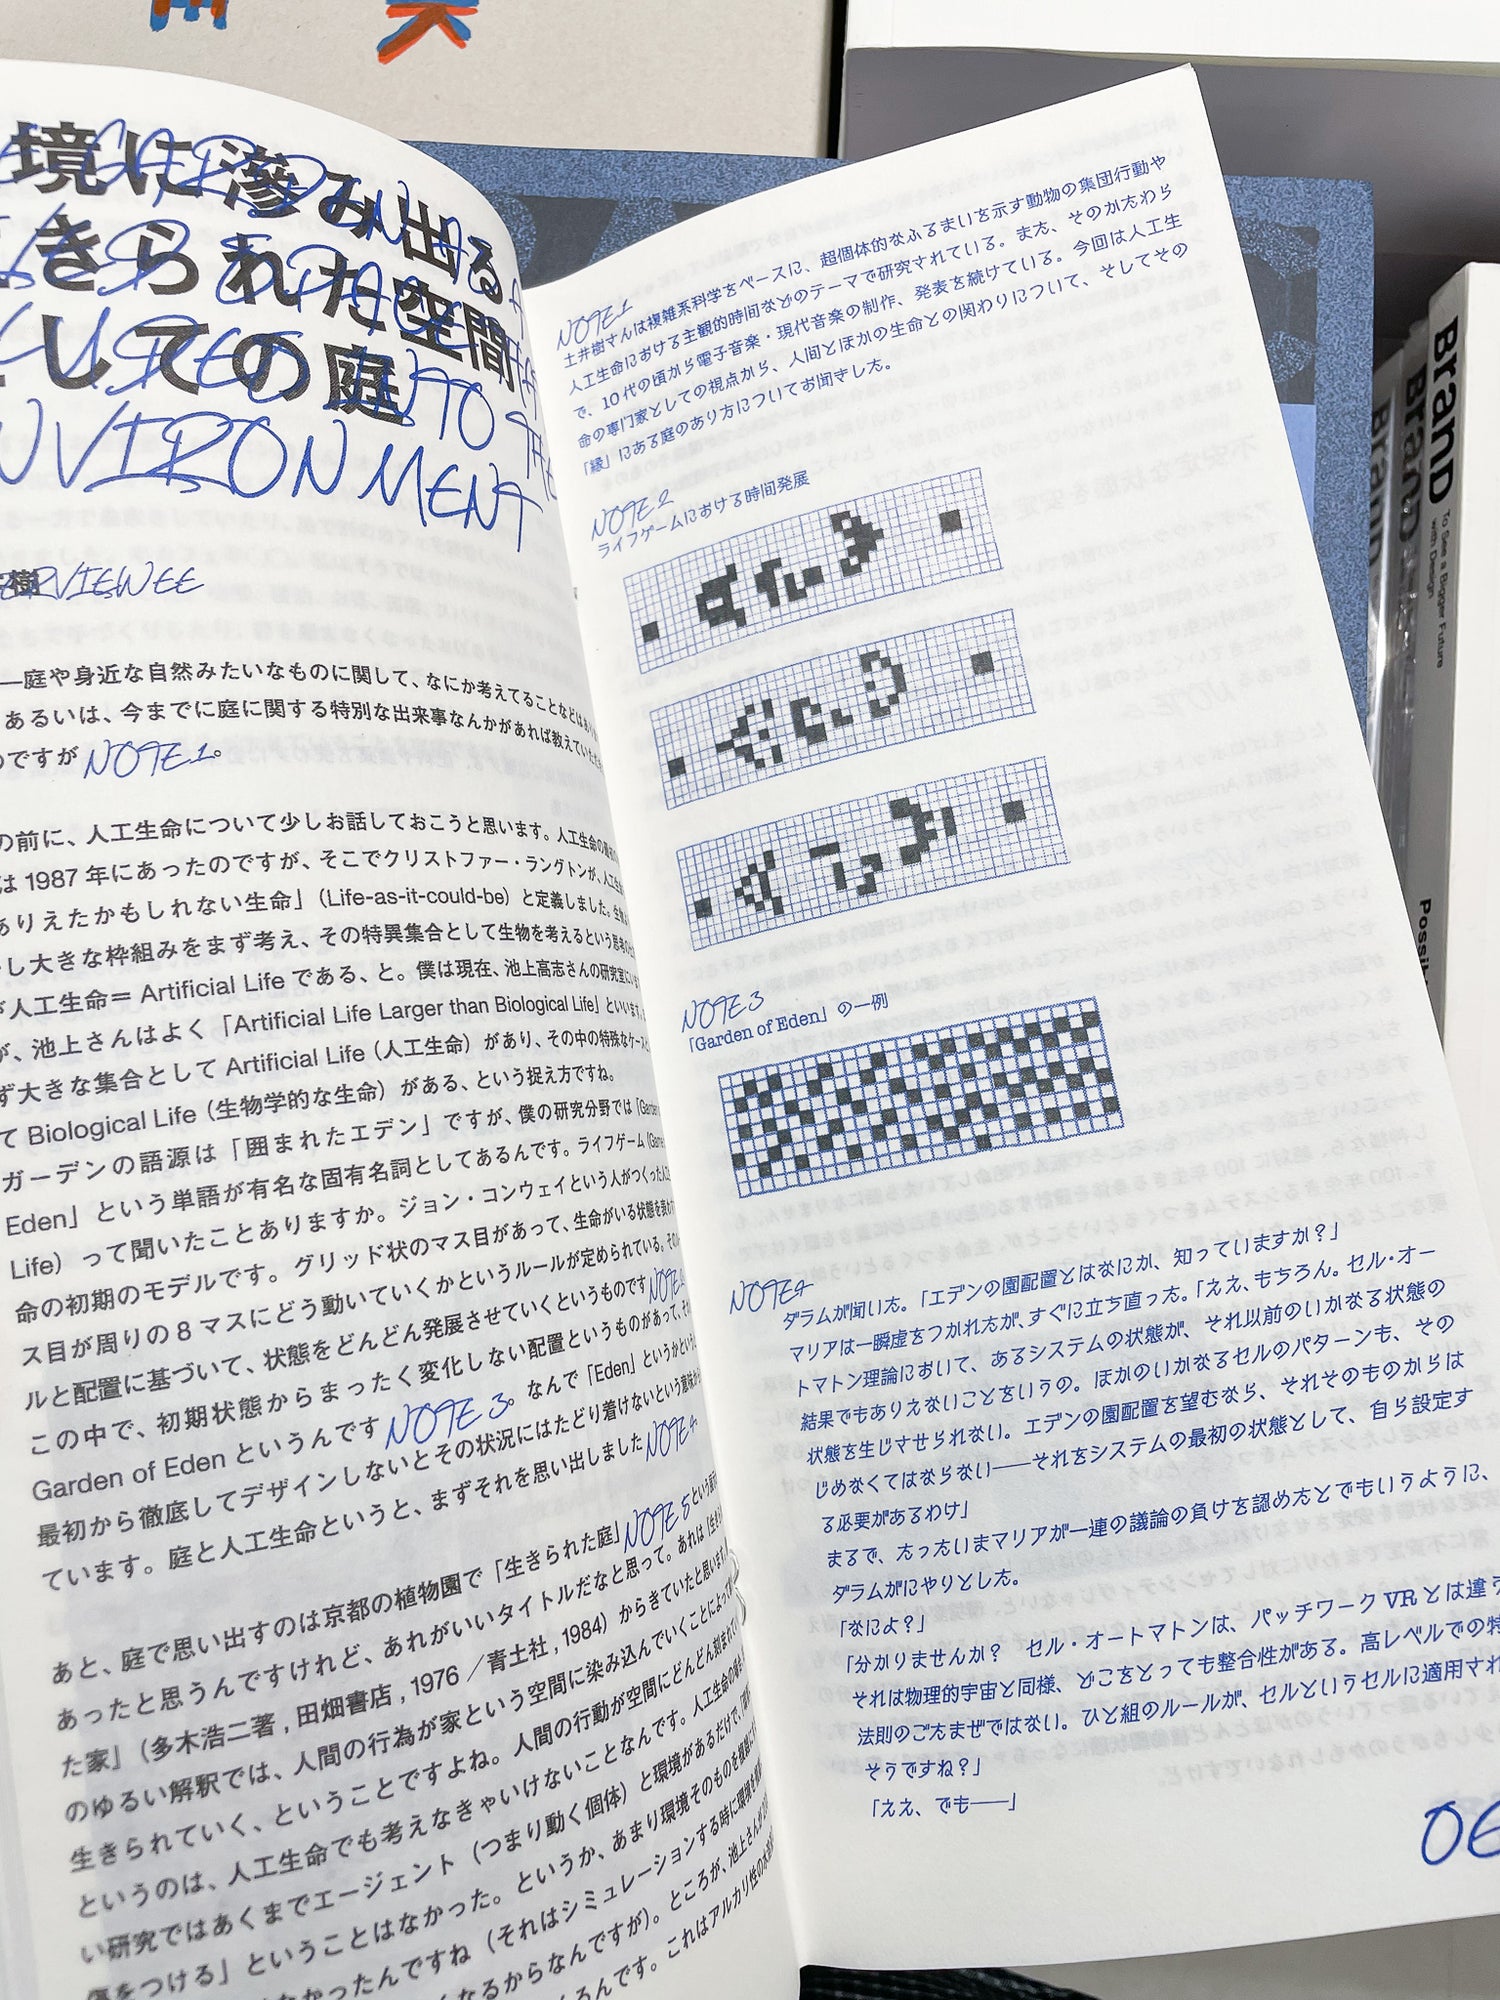 境に滲み出る
きられた空間
しての庭
INTO THE
ENVIRONMENT
INTERVIEWEE
—庭や身近な自然みたいなものに関して、なにか考えてることなどは
あるいは、今までに庭に関する特別な出来事なんかがあれば教えていただ
のですが NOTE 1。
の前に、人工生命について少しお話しておこうと思います。人工生命の
は 1987 年にあったのですが、そこでクリストファー・ラングトンが、人工
ありえたかもしれない生命」（Life-as-it-could-be）と定義しました。
し大きな枠組みをまず考え、その特異集合として生物を考えるという思考
が人工生命＝ Artificial Life である、と。僕は現在、池上高志さんの研究室にい
が、池上さんはよく「Artificial Life Larger than Biological Life」といいます。
ず大きな集合として Artificial Life（人工生命）があり、その中の特殊なケース
て Biological Life（生物学的な生命）がある、という捉え方ですね。
ガーデンの語源は「囲まれたエデン」ですが、僕の研究分野では「Garden
Eden」という単語が有名な固有名詞としてあるんです。ライフゲーム（Game
Life）って聞いたことありますか。ジョン・コンウェイという人がつくった人工
命の初期のモデルです。グリッド状のマス目があって、生命がいる状態を表わす
ス目が周りの 8 マスにどう動いていくかというルールが定められている。その
ルと配置に基づいて、状態をどんどん発展させていくというものです NOTE 2
この中で、初期状態からまったく変化しない配置というものがあって、それ
Garden of Eden というんです NOTE 3。なんで「Eden」というかという
最初から徹底してデザインしないとその状況にはたどり着けないという意味が
ています。庭と人工生命というと、まずそれを思い出しました NOTE 4。
あと、庭で思い出すのは京都の植物園で「生きられた庭」NOTE 5 という展
あったと思うんですけれど、あれがいいタイトルだなと思って。あれは「生き
た家」（多木浩二著 , 田畑書店 , 1976 ／青土社 , 1984）からきていたと思います
のゆるい解釈では、人間の行為が家という空間に染み込んでいくことによって
生きられていく、ということですよね。人間の行動が空間にどんどん刻まれてい
というのは、人工生命でも考えなきゃいけないことなんです。人工生命の場合
い研究ではあくまでエージェント（つまり動く個体）と環境があるだけで、「環
傷をつける」ということはなかった。というか、あまり環境そのものを複雑に
なかったんですね（それはシミュレーションする時に環境を
くなるからなんですが）。ところが、池上さんが
るんです。これはアルカリ性の水
NOTE 1
土井樹さんは複雑系科学をベースに、超個体的なふるまいを示す動物の集団行動や
人工生命における主観的時間などのテーマで研究されている。また、そのかたわら
で、10代の頃から電子音楽・現代音楽の制作、発表を続けている。今回は人工生
命の専門家としての視点から、人間とほかの生命との関わりについて、そしてその
「縁」にある庭のあり方についてお聞きした。
NOTE 2
ライフゲームにおける時間発展
NOTE 3
「Garden of Eden」の一例
NOTE 4
ダラムが聞いた。「エデンの園配置とはなにか、知っていますか？」
マリアは一瞬虚をつかれたが、すぐに立ち直った。「ええ、もちろん。セル・オー
トマトン理論において、あるシステムの状態が、それ以前のいかなる状態の
結果でもありえないことをいうの。ほかのいかなるセルのパターンも、その
状態を生じさせられない。エデンの園配置を望むなら、それそのものからは
じめなくてはならない——それをシステムの最初の状態として、自ら設定す
る必要があるわけ」
まるで、たったいまマリアが一連の議論の負けを認めたとでもいうように、
ダラムがにやりとした。
「なによ？」
「分かりませんか？　セル・オートマトンは、パッチワーク VR とは違う
それは物理的宇宙と同様、どこをとっても整合性がある。高レベルでの特
法則のごたまぜではない。ひと組のルールが、セルというセルに適用され
そうですね？」
「ええ、でも——」
06
BranD
To See a Bigger Future
with Design
BranD
BranD
Possi